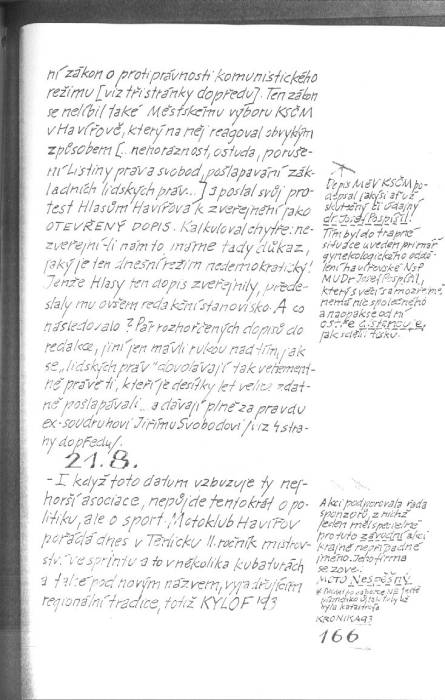 ní zákon o protiprávnosti komunistického
režimu [viz tři stránky dopředu]. Ten zákon
se nelíbil také Městskému výboru KSČM
v Havířově, který na něj reagoval obvyklým
způsobem [... nehoráznost, ostuda, poruše-
ní Listiny práv a svobod, pošlapavání zák-
ladních lidských práv...] a poslal svůj pro-
test Hlasům Havířova k zveřejnění jako
OTEVŘENÝ DOPIS. Kalkuloval chytře: ne-
zveřejní-li nám to máme tady důkaz,
jaký je ten dnešní režim nedemokratický!
Jenže Hlasy ten dopis zveřejnily, přede-
slaly mu ovšem redakční stanovisko. A co
následovalo? Pár rozhořčených dopisů do
redakce, jiní jen mávli rukou nad tím, jak
se "lidských práv" dovolávají tak vehement-
ně právě ti, kteří je desítky let velice zdat-
ně pošlapávali... a dávají plně za pravdu
ex-soudruhovi Jiřímu Svobodovi /viz 4 stra-
ny dopředu/.
21.8.
- I když toto datum vzbuzuje ty nej-
horší asociace, nepůjde tentokrát o po-
litiku, ale o sport. Motoklub Havířov
pořádá dnes v Těrlicku II. ročník mistrov-
ství ve sprintu a to v několika kubaturách
a také pod novým názvem, vyjadřujícím
regionální tradice, totiž KYLOF '93
Dopis MěV KSČM po-
depsal jakýsi ať už
skutečný či údajný
dr. Josef Pospíšil.
Tím byl do trapné
situace uveden primář
gynekologického oddě-
lení havířovské NsP
MUDr Josef Pospíšil,
který s věcí samozřejmě
nemá nic společného
a naopak se od ní
ostře distancuje,
jak sdělil tisku.
Akci podporovala řada
sponzorů, z nichž
jeden měl speciálně
pro tuto závodní akci
krajně nepřípadné
jméno. Jeho firma
se zove
MOTO Nespěšný
byla katastrofa
KRONIKA 93
166